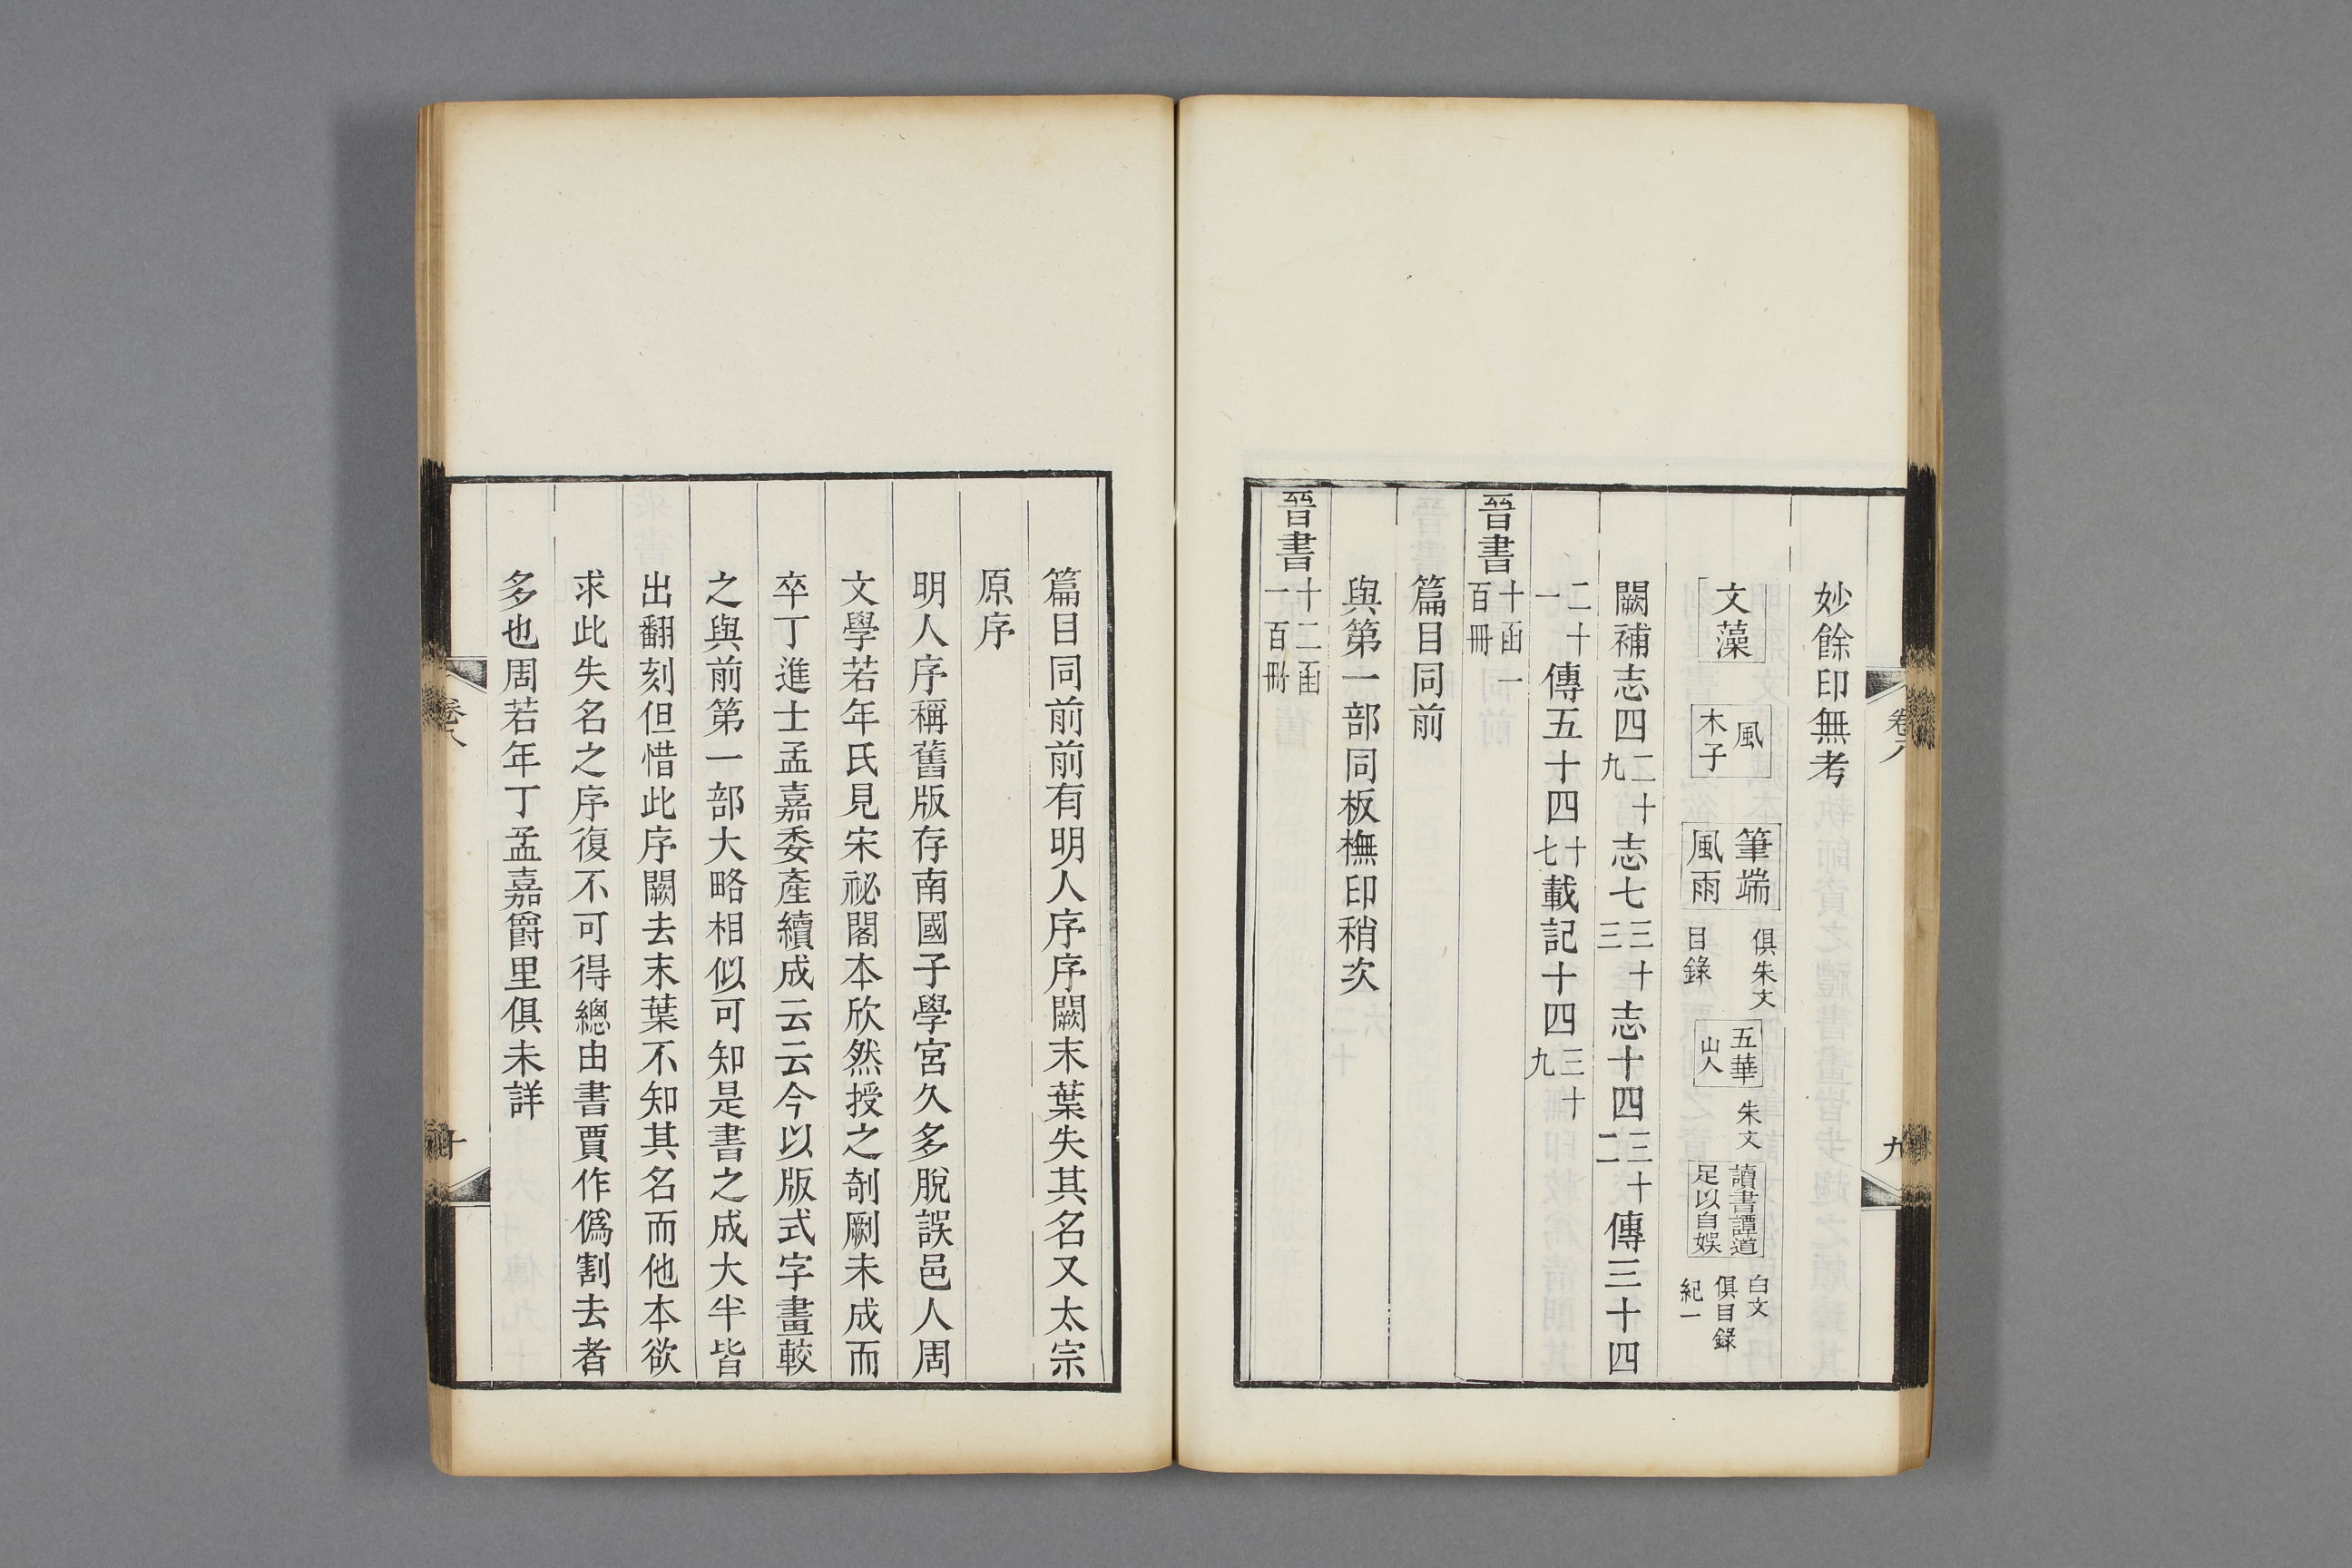 妙餘印無考
文藻 風木子 筆端風雨 俱朱文目錄 五華山人 朱文 讀書譚道足以自娛 白文俱目錄紀一
闕補志四二十九志七三十三志十四三十二傳三十四
二十一傳五十四十七載記十四三十九
晉書十函一百冊
篇目同前
與第一部同板橅印稍次
晉書十二函一百冊
卷八
九
篇目同前前有明人序序闕末葉失其名又太宗
原序
明人序稱舊版存南國子學宮久多脫誤邑人周
文學若年氏見宋祕閣本欣然授之剞劂未成而
卒丁進士孟嘉委產續成云云今以版式字畫較
之與前第一部大略相似可知是書之成大半皆
出翻刻但惜此序闕去末葉不知其名而他本欲
求此失名之序復不可得總由書賈作僞割去者
多也周若年丁孟嘉爵里俱未詳
卷八
十